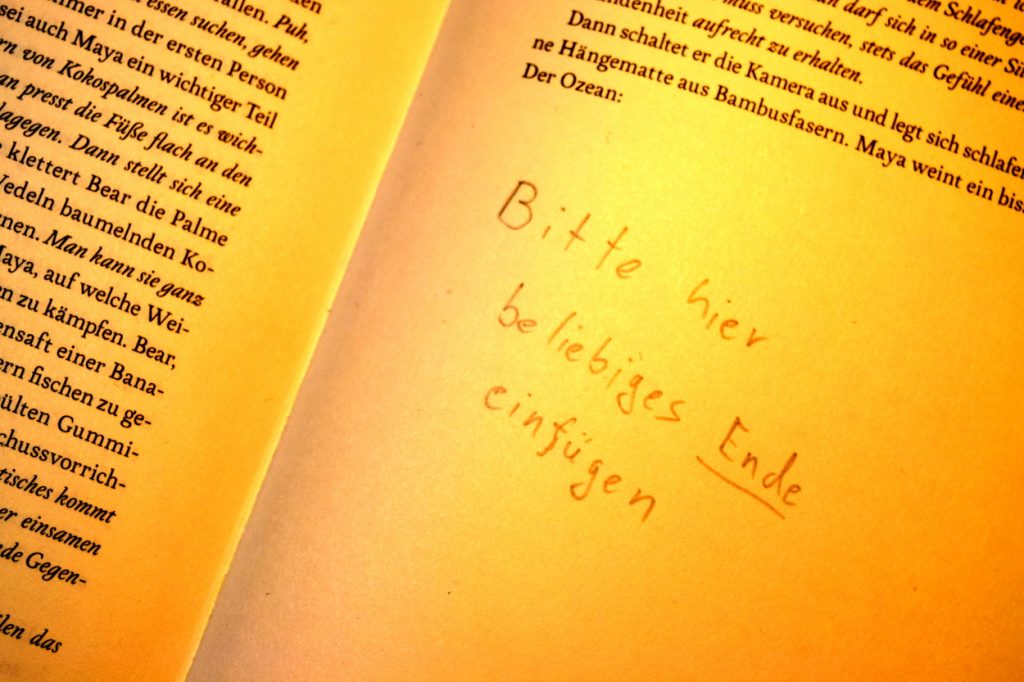 essen suchen, gehen
mmer in der ersten Person
sei auch Maya ein wichtiger Teil
von Kokospalmen ist es wich-
an presst die Füße flach an den
dagegen. Dann stellt sich eine
klettert Bear die Palme
Wedeln baumelnden Ko-
nen. Man kann sie ganz
Maya, auf welche Wei-
en zu kämpfen. Bear,
ensaft einer Bana-
ern fischen zu ge-
ülten Gummi-
chussvorrich-
tisches kommt
er einsamen
de Gegen-
len das
darf sich in so einer Si
muss versuchen, stets das Gefühl eine
ndenheit aufrecht zu erhalten.
Dann schaltet er die Kamera aus und legt sich schlafe
ne Hängematte aus Bambusfasern. Maya weint ein bis
Der Ozean:
Bitte hier
beliebiges Ende
einfügen